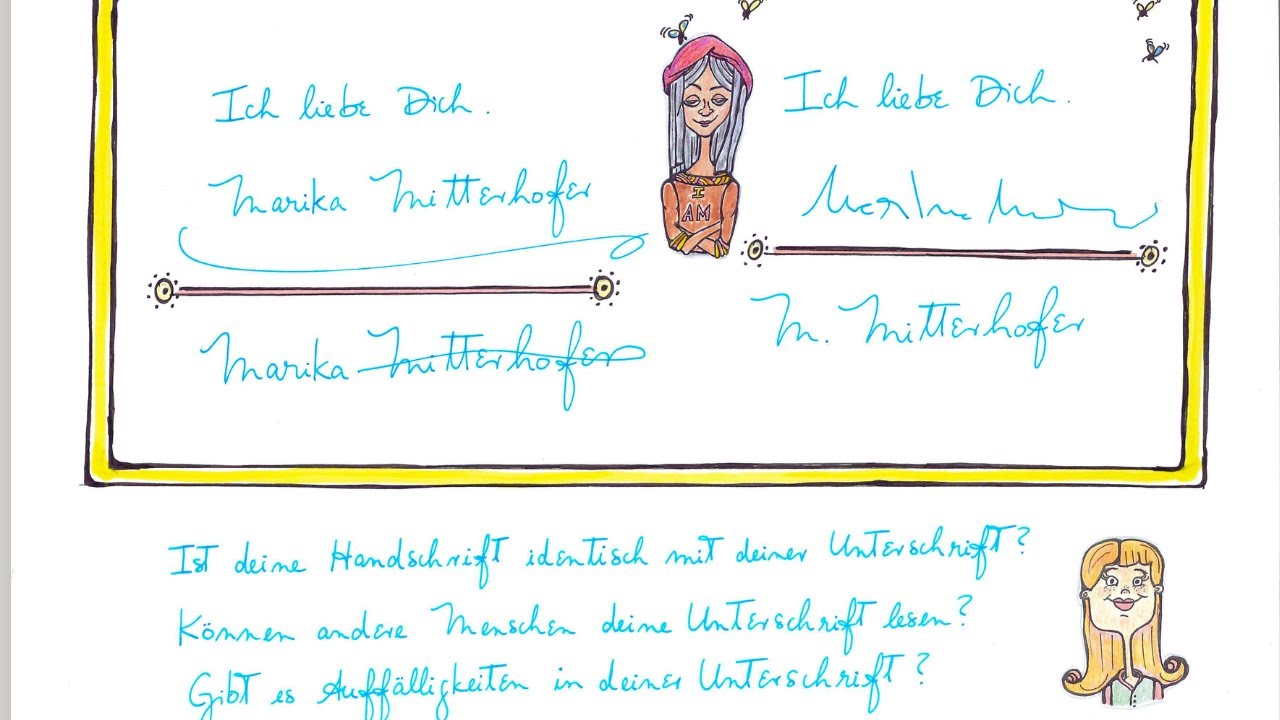 Ich liebe Dich.
Marika Mitterhofer
Marika Mitterhofer
I
AM
Ich liebe Dich.
M. Mitterhofer
Ist deine Handschrift identisch mit deiner Unterschrift?
Können andere Menschen deine Unterschrift lesen?
Gibt es Auffälligkeiten in deiner Unterschrift?